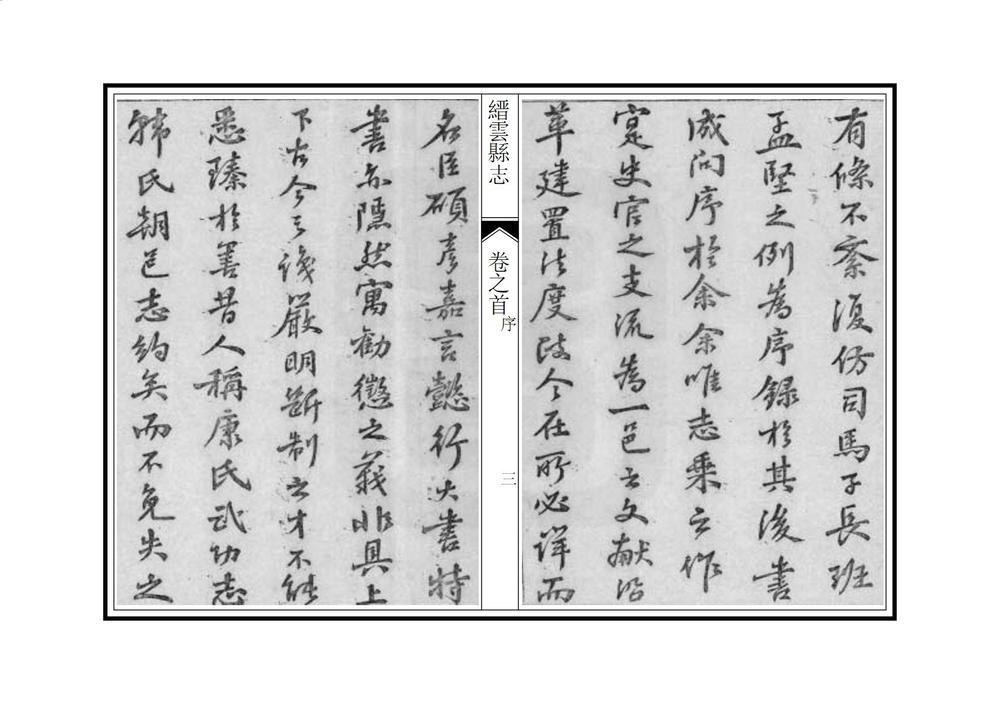 有條不紊復仿司馬子長班
孟堅之例為序錄於其後書
成問序於余余唯志乘之作
寔史官之支流為一邑之文獻沿
革建置法度政令在所必詳而
縉雲縣志
卷之首
序
三
名臣碩彥嘉言懿行大書特
書亦隱然寓勸懲之義非具上
下古今之識嚴明斷制之才不能
悉臻於善昔人稱康氏武功志
韓氏朝邑志約矣而不免失之